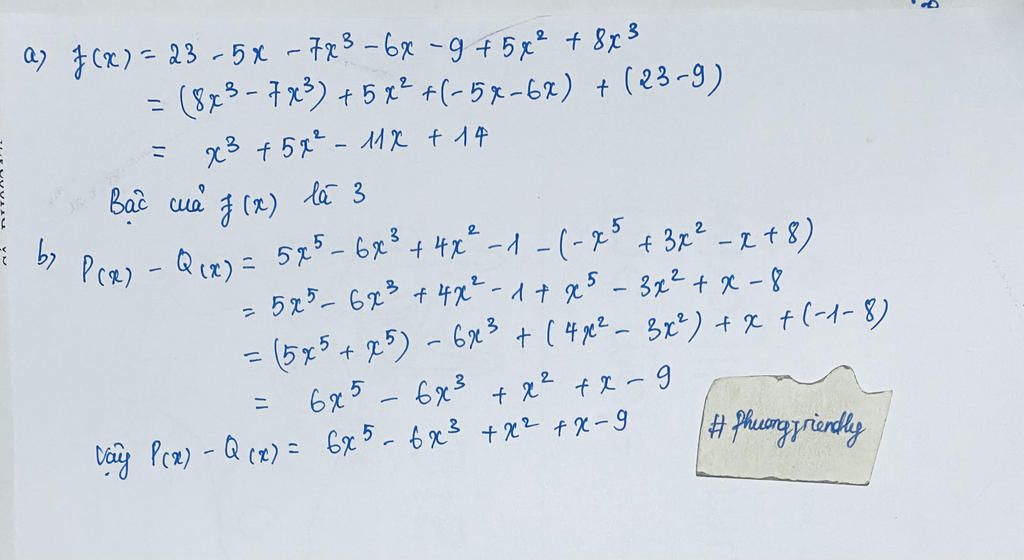 a) f(x) = 23 - 5x - 7x³ - 6x - 9 + 5x² + 8x³
= (8x³ - 7x³) + 5x² + (-5x - 6x) + (23 - 9)
= x³ + 5x² - 11x + 14
Bậc của f(x) là 3
b) P(x) - Q(x) = 5x⁵ - 6x³ + 4x² - 1 - (-x⁵ + 3x² - x + 8)
= 5x⁵ - 6x³ + 4x² - 1 + x⁵ - 3x² + x - 8
= (5x⁵ + x⁵) - 6x³ + (4x² - 3x²) + x + (-1 - 8)
= 6x⁵ - 6x³ + x² + x - 9
Vậy P(x) - Q(x) = 6x⁵ - 6x³ + x² + x - 9
# phuongfriendly